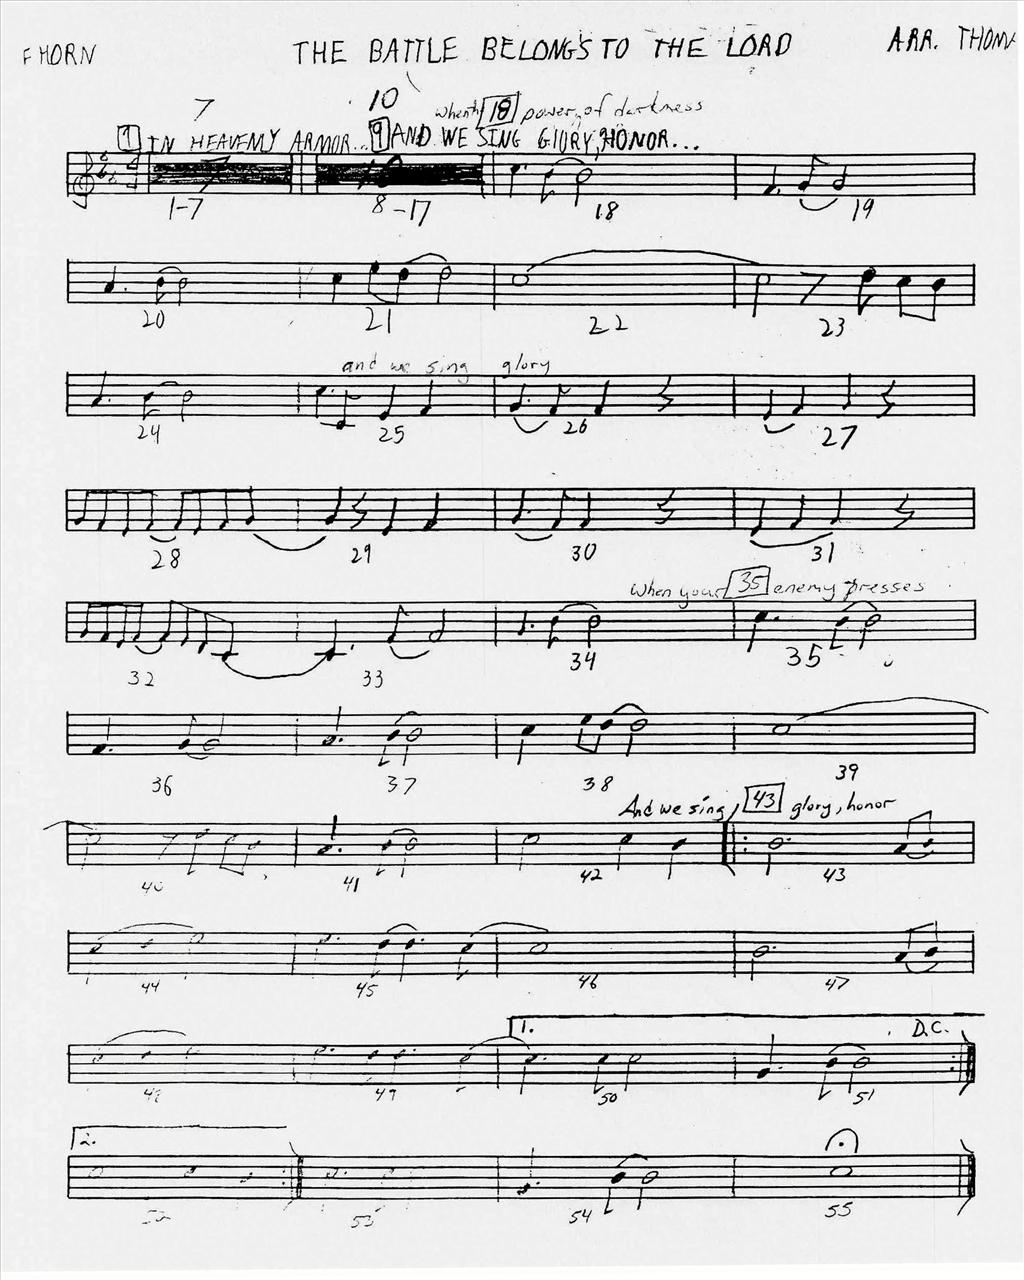 F HORN THE BATTLE BELONGS TO THE LORD ARR. THOM
7 10 when th 18 power of darkness
1 IN HEAVENLY ARMOR... 9 AND WE SING GLORY, HONOR...
1-7 8-17 18 19
20 21 22 23
and we sing glory
24 25 26 27
28 29 30 31
When your 35 enemy presses
32 33 34 35
36 37 38 39
And we sing, 43 glory, honor
40 41 42 43
44 45 46 47
1. D.C.
48 49 50 51
2.
52 53 54 55